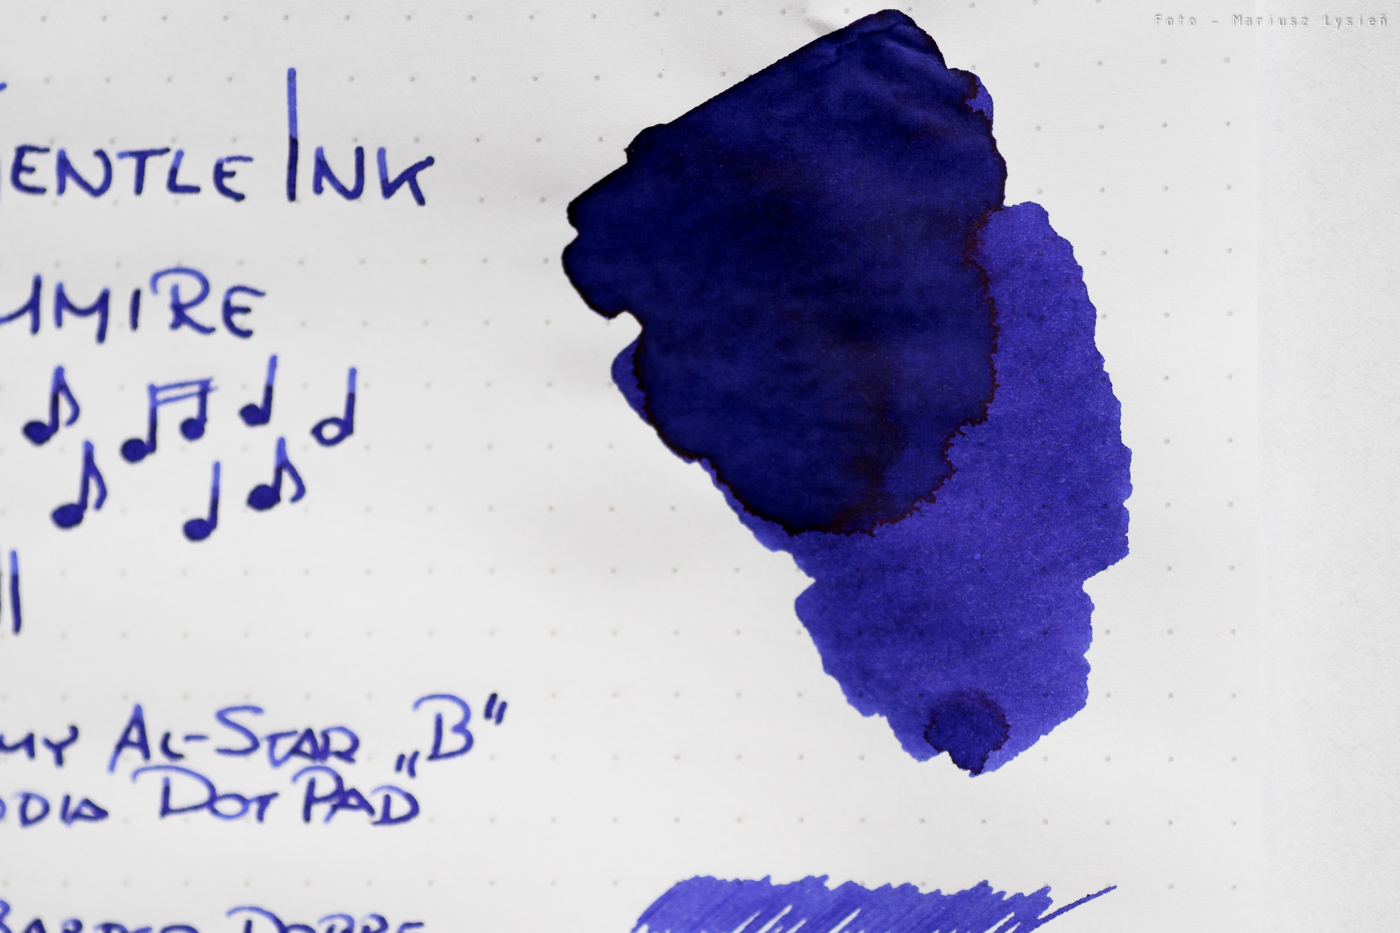 Foto - Mariusz Łysień
ENTLE INK
MIRE
AL-STAR „B”
DOT PAD
DOBRE